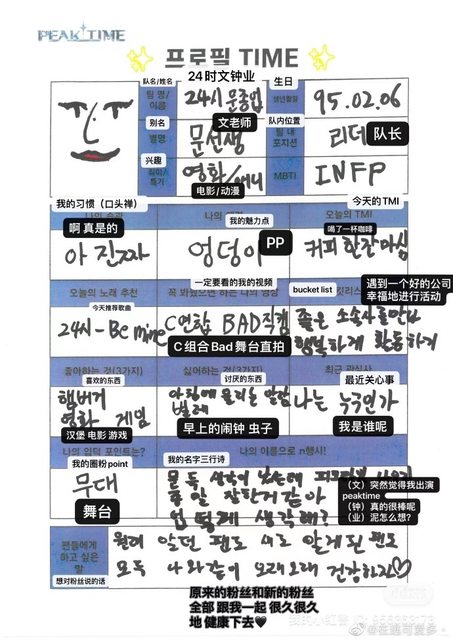 PEAK TIME
프로필 TIME
队名/姓名
24时文钟业
生日
팀 명/
이름
24시 문종업
생년월일
95.02.06
别名
文老师
队内位置
별명
문선생
팀 내
포지션
리더
队长
兴趣
취미/
특기
영화/애니
电影/动漫
MBTI
INFP
我的习惯（口头禅）
我的魅力点
今天的TMI
나의
오늘의 TMI
啊 真是的
PP
喝了一杯咖啡
아 진짜
엉덩이
커피 한잔 마심
一定要看的我的视频
bucket list
遇到一个好的公司
幸福地进行活动
오늘의 노래 추천
今天推荐歌曲
24시 - Be mine
C연합 BAD 직캠
좋은 소속사를 만나
행복하게 활동하기
C组合Bad舞台直拍
좋아하는 것(3가지)
싫어하는 것(3가지)
최근 관심사
喜欢的东西
讨厌的东西
最近关心事
햄버거
영화 게임
아침에 울리는 알람
벌레
나는 누구인가
汉堡 电影 游戏
早上的闹钟 虫子
我是谁呢
나의 입덕 포인트는?
나의 이름으로 n행시!
我的圈粉point
我的名字三行诗
무대
舞台
문득
종
업 떻게 생각해?
（文）突然觉得我出演
peaktime
（钟）真的很棒呢
（业）泥怎么想？
팬들에게
하고 싶은
말
想对粉丝说的话
원래 알던 팬도 새로 알게된 팬도
모두 나와 같이 오래오래 건강하자♡
原来的粉丝和新的粉丝
全部 跟我一起 很久很久
地 健康下去♥